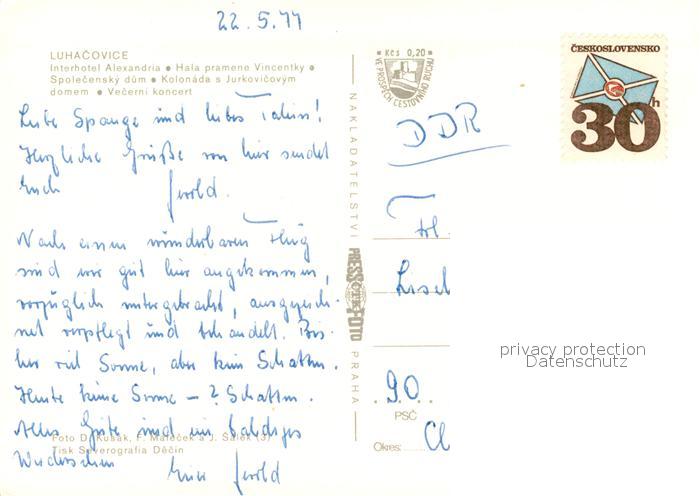 22.5.77
LUHAČOVICE
Interhotel Alexandria • Hala pramene Vincentky •
Společenský dům • Kolonáda s Jurkovičovým
domem • Večerní koncert
Liebe Spange und liebes
Herzliche Grüße von hier sendet
Euch
Nach einem wunderbaren Flug
sind wir gut hier angekommen,
vorzüglich untergebracht, ausgezeich-
net verpflegt und behandelt. Bis-
her viel Sonne, aber kein Schatten.
Heute keine Sonne – ? Schatten.
Alles Gute und ein baldiges
Wiedersehen
Euer
Foto D. Kusák, F. Maleček a J. Šálek (3)
Tisk Severografia Děčín
NAKLADATELSTVÍ
PRESSFOTO
PRAHA
Kčs 0,20
VE PROSPĚCH CESTOVNÍHO RUCHU
ČESKOSLOVENSKO
30h
DDR
Frl.
90
PSČ
Okres:
privacy protection
Datenschutz